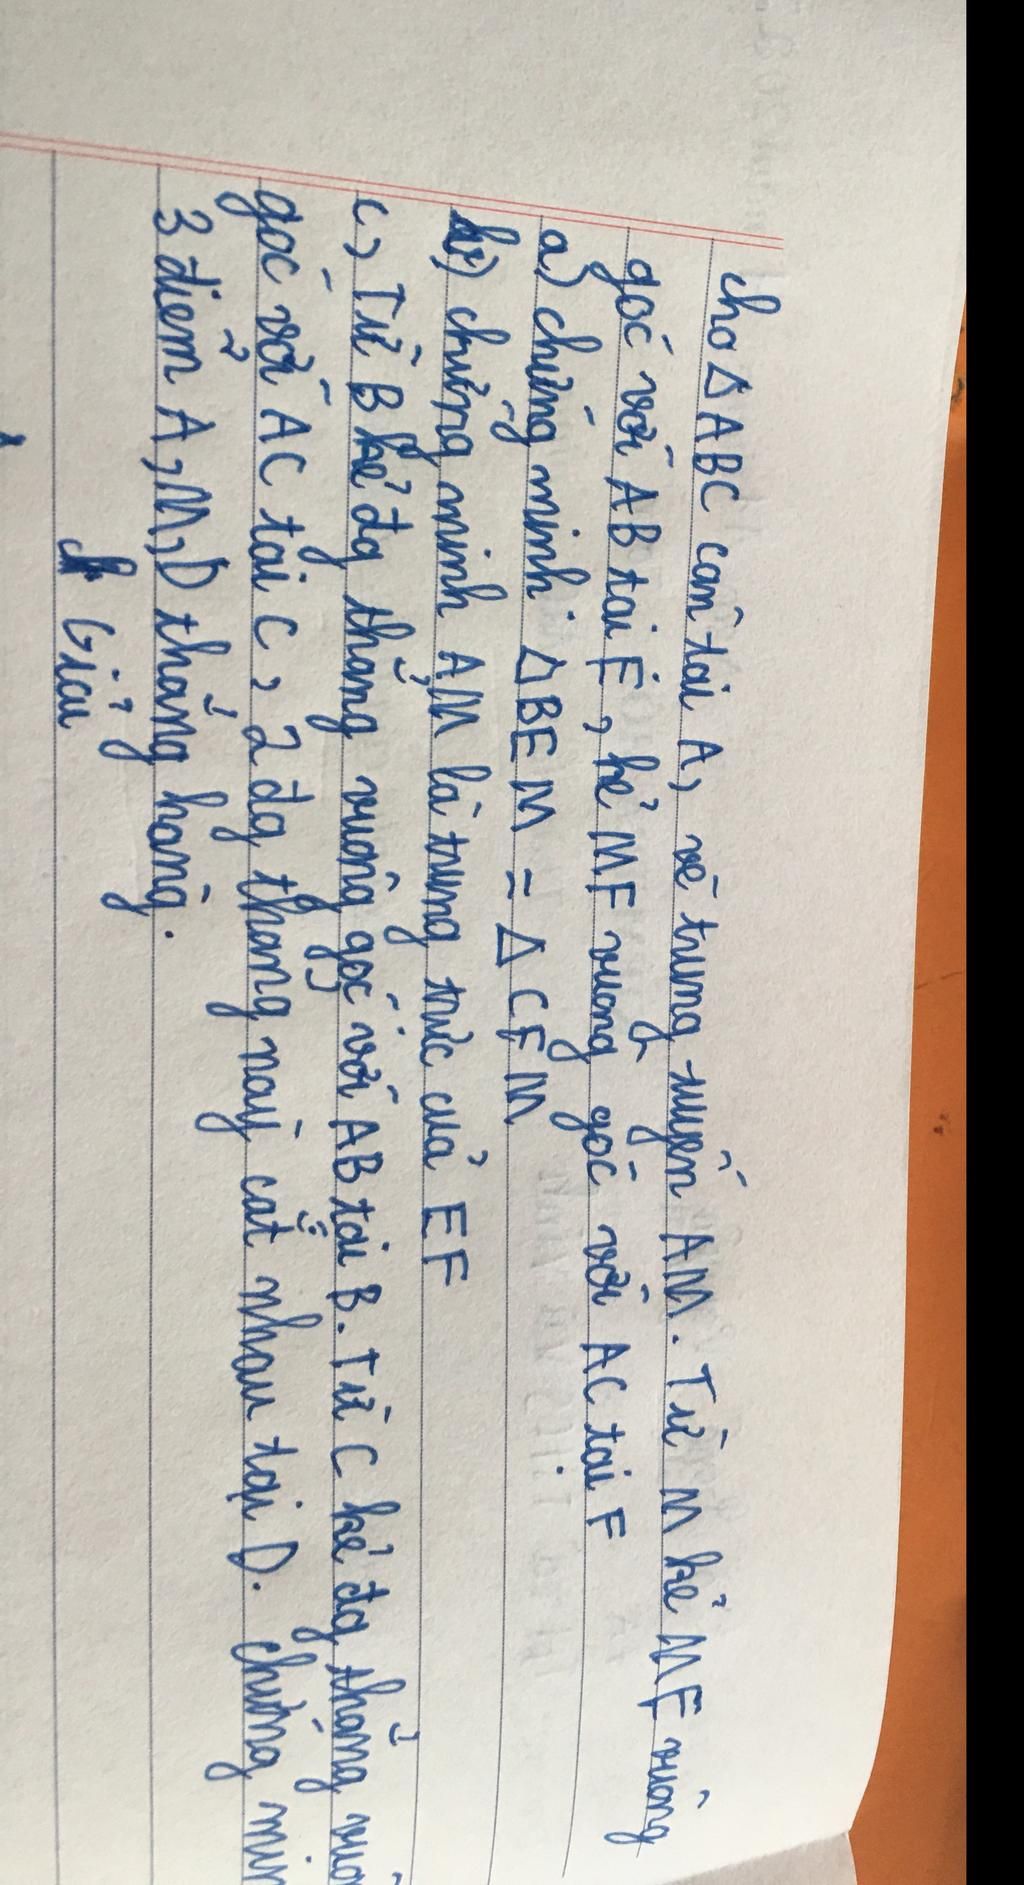 cho △ABC cân tại A, vẽ trung tuyến AM. Từ M kẻ MF vuông
góc với AB tại E, kẻ MF vuông góc với AC tại F
a) chứng minh △BEM = △CFM
b) chứng minh AM là trung trực của EF
c, Từ B kẻ đg thẳng vuông góc với AB tại B. Từ C kẻ đg thẳng
góc với AC tại C, 2 đg thẳng này cắt nhau tại D. chứng
3 điểm A, M, D thẳng hàng.
Giải